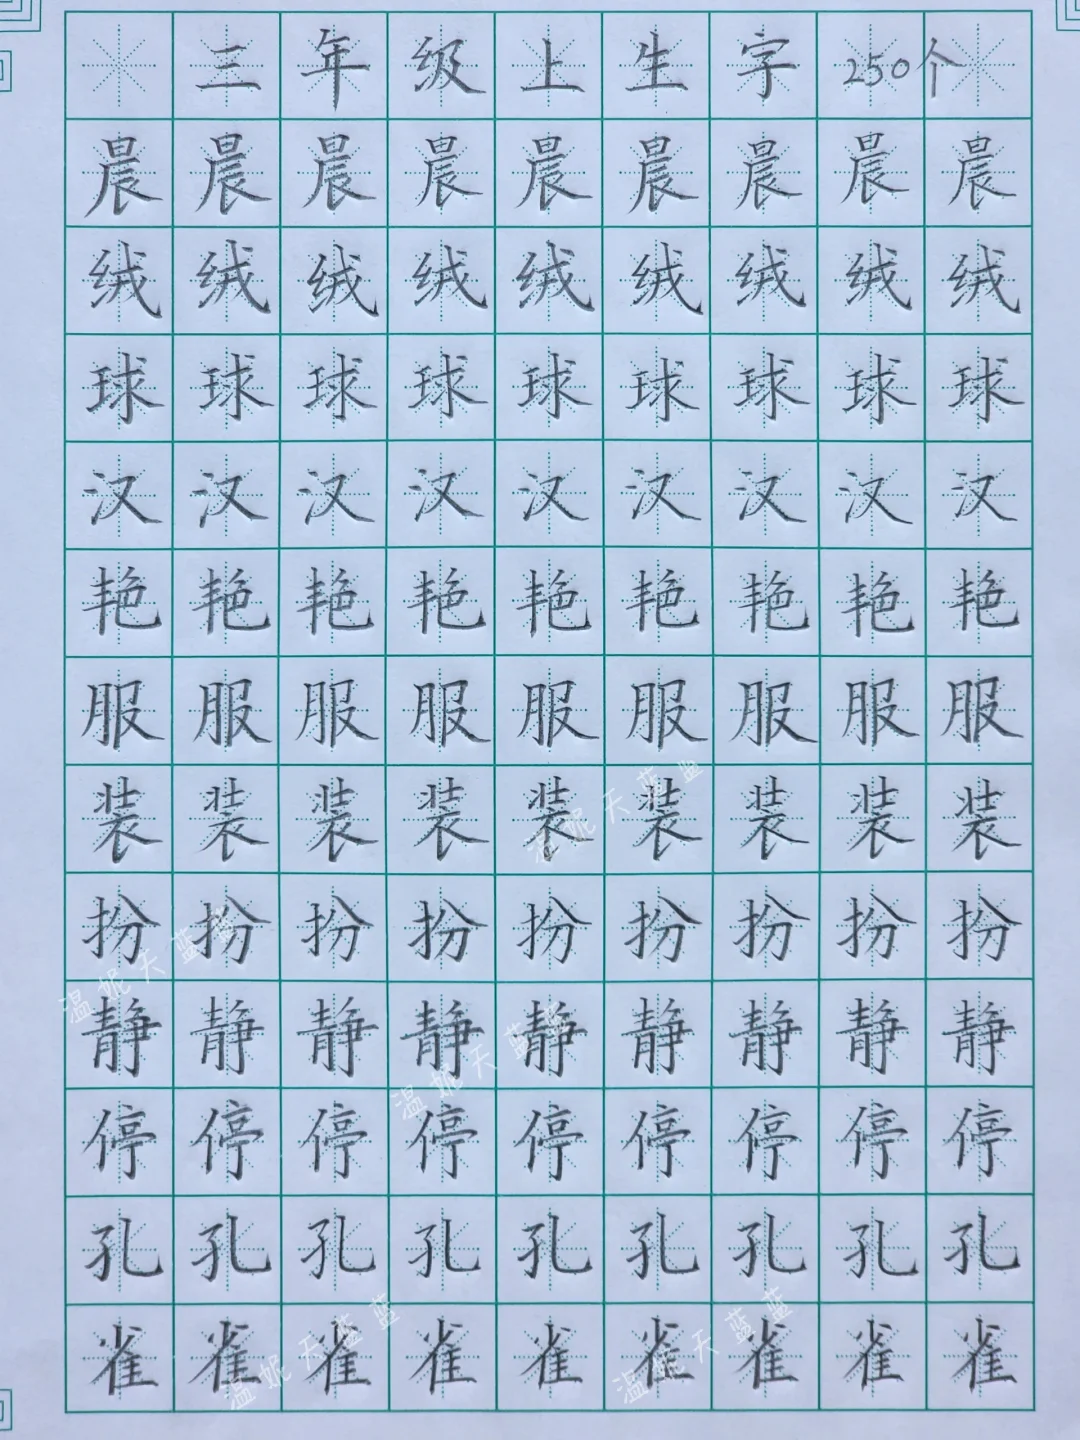 三年级上生字250个
晨晨晨晨晨晨晨晨晨
绒绒绒绒绒绒绒绒绒
球球球球球球球球球
汉汉汉汉汉汉汉汉汉
艳艳艳艳艳艳艳艳艳
服服服服服服服服服
装装装装装装装装装
温妮天蓝蓝
扮扮扮扮扮扮扮扮扮
温妮天蓝蓝
静静静静静静静静静
温妮天蓝蓝
停停停停停停停停停
孔孔孔孔孔孔孔孔孔
雀雀雀雀雀雀雀雀雀
温妮天蓝蓝
温妮天蓝蓝